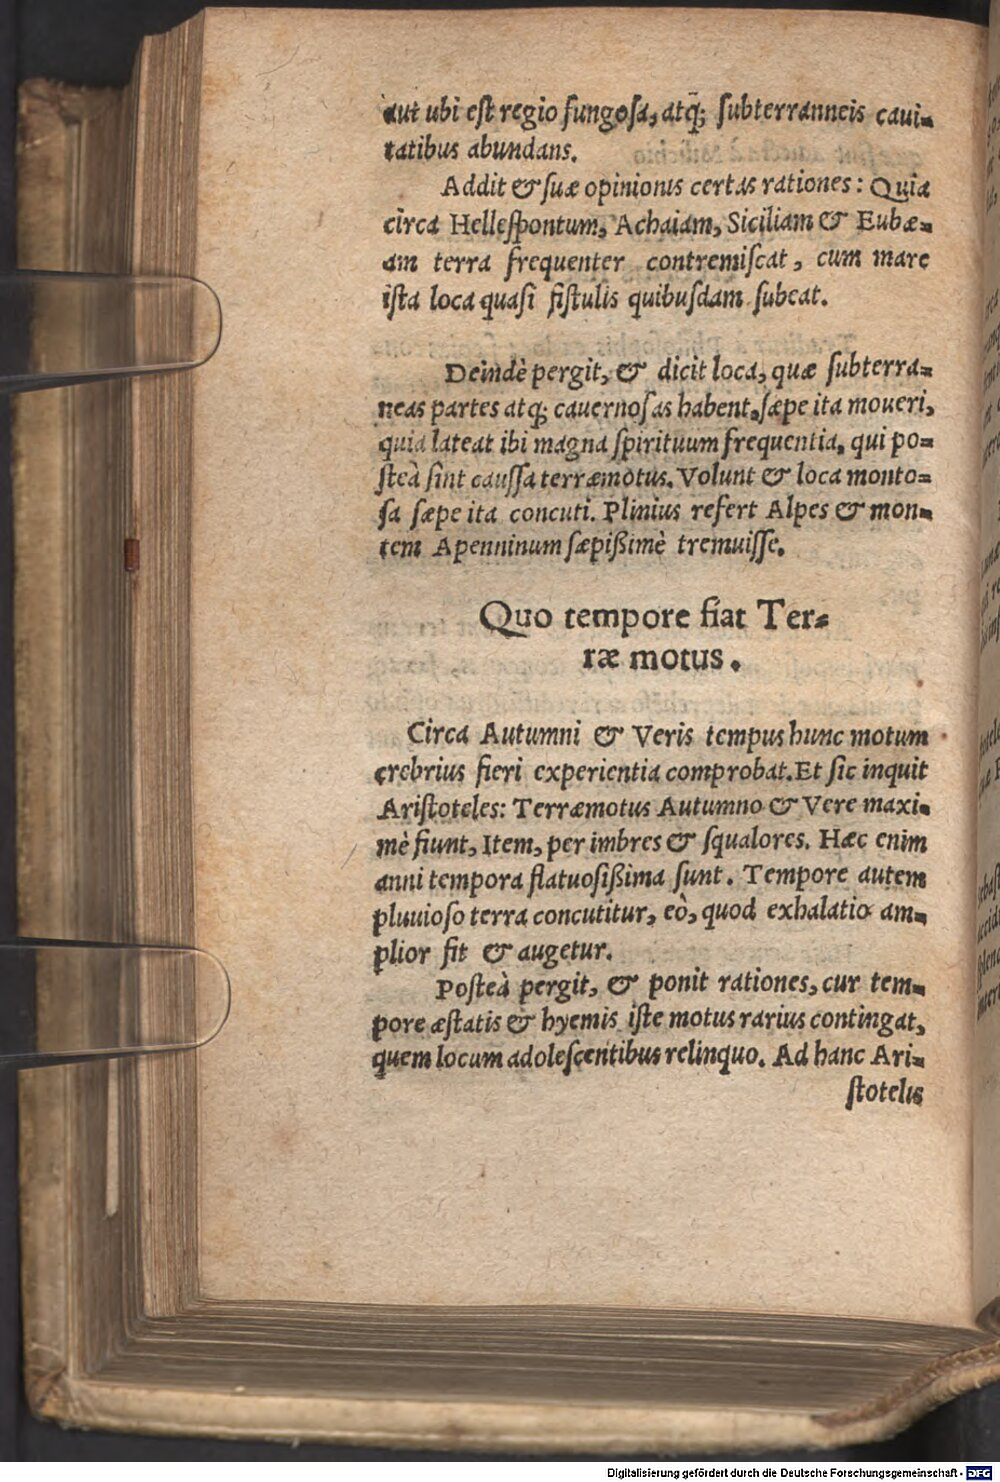 aut ubi est regio fungosa, atq; subterranneis caui=
tatibus abundans.
Addit & suæ opinionis certas rationes: Quia
circa Hellespontum, Achaiam, Siciliam & Eubæ=
am terra frequenter contremiscat, cum mare
ista loca quasi fistulis quibusdam subeat.
Deindè pergit, & dicit loca, quæ subterra=
neas partes atq; cauernosas habent, sæpe ita moueri,
quia lateat ibi magna spirituum frequentia, qui po=
steà sint caussa terræmotus. Volunt & loca monto=
sa sæpe ita concuti. Plinius refert Alpes & mon=
tem Apenninum sæpißimè tremuisse.
Quo tempore fiat Ter=
ræ motus.
Circa Autumni & Veris tempus hunc motum
crebrius fieri experientia comprobat. Et sic inquit
Aristoteles: Terræmotus Autumno & Vere maxi=
mè fiunt, Item, per imbres & squalores. Hæc enim
anni tempora flatuosißima sunt. Tempore autem
pluuioso terra concutitur, eò, quod exhalatio am=
plior fit & augetur.
Posteà pergit, & ponit rationes, cur tem=
pore æstatis & hyemis iste motus rarius contingat,
quem locum adolescentibus relinquo. Ad hanc Ari=
stotelis
Digitalisierung gefördert durch die Deutsche Forschungsgemeinschaft - DFG